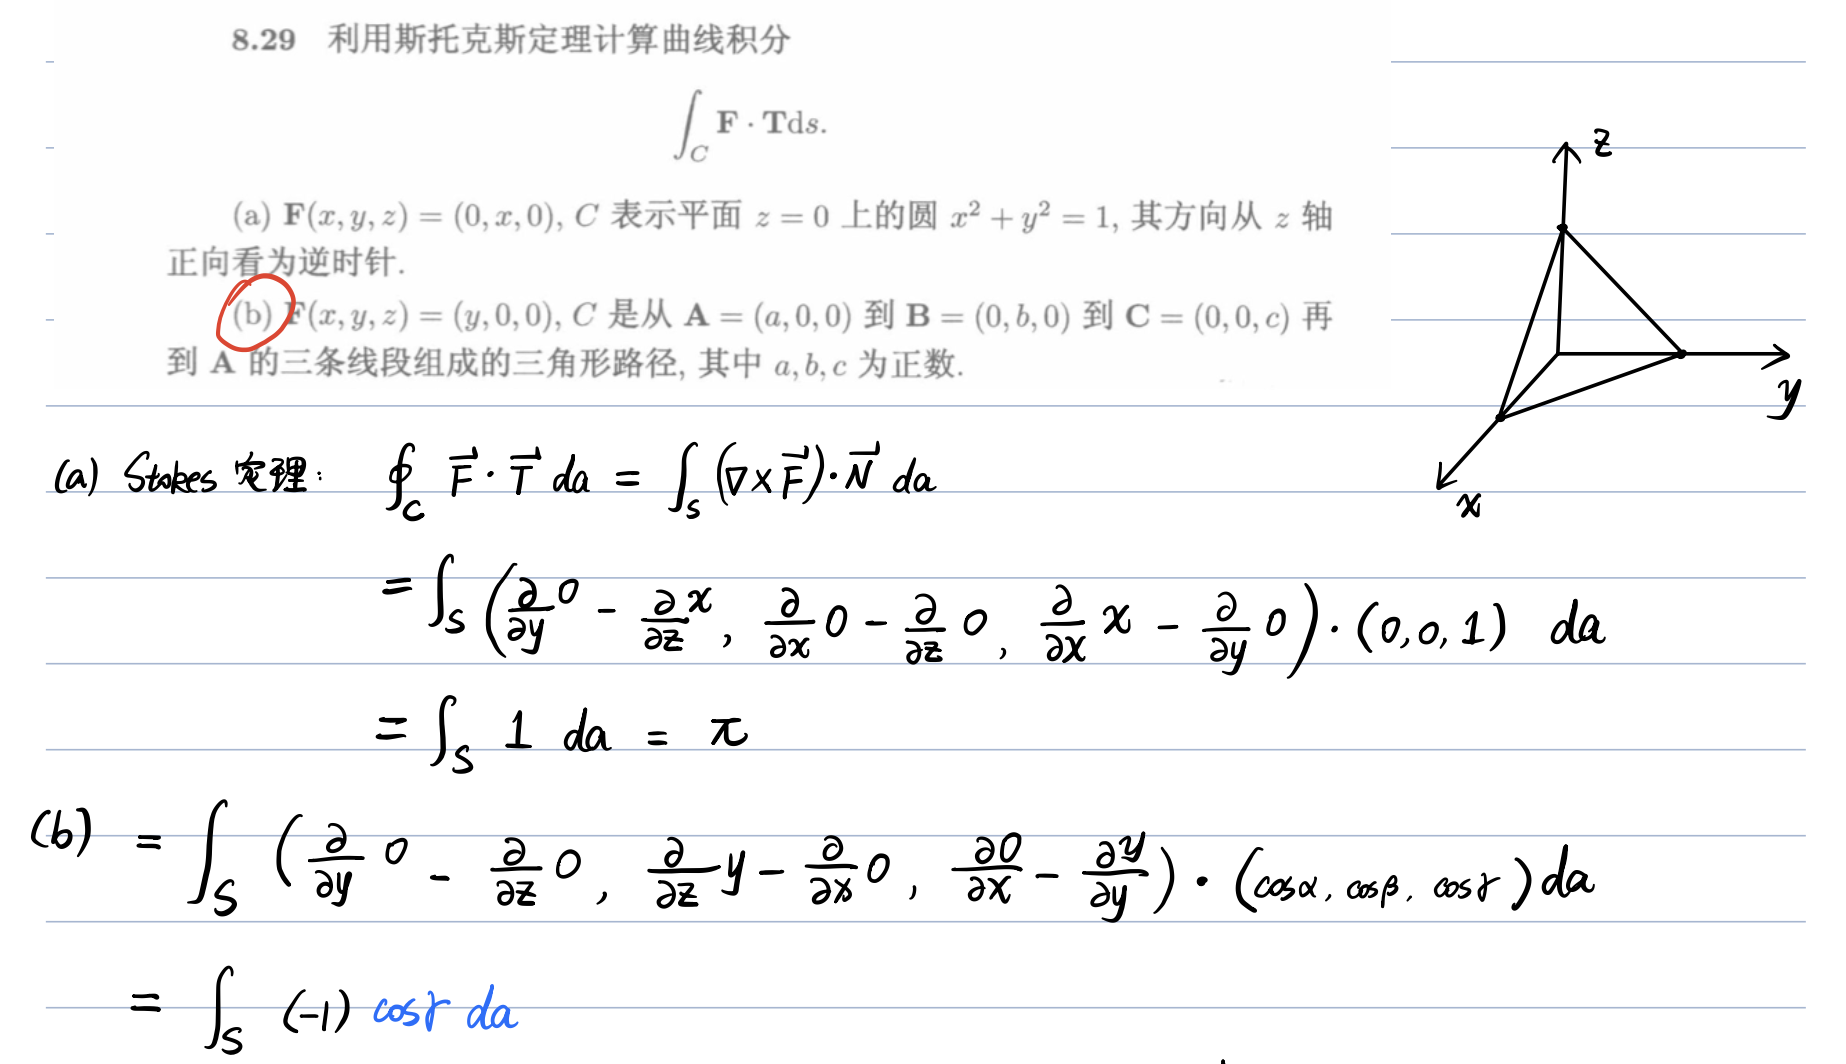 8.29 利用斯托克斯定理计算曲线积分
∫_C F · T ds.
(a) F(x, y, z) = (0, x, 0), C 表示平面 z = 0 上的圆 x² + y² = 1, 其方向从 z 轴
正向看为逆时针.
(b) F(x, y, z) = (y, 0, 0), C 是从 A = (a, 0, 0) 到 B = (0, b, 0) 到 C = (0, 0, c) 再
到 A 的三条线段组成的三角形路径, 其中 a, b, c 为正数.
z
y
x
(a) Stokes 定理: ∮_C F⃗ · T⃗ da = ∫_S (∇×F⃗)·N⃗ da
= ∫_S (∂/∂y 0 − ∂/∂z x, ∂/∂x 0 − ∂/∂z 0, ∂/∂x x − ∂/∂y 0) · (0, 0, 1) da
= ∫_S 1 da = π
(b) = ∫_S (∂/∂y 0 − ∂/∂z 0, ∂/∂z y − ∂/∂x 0, ∂0/∂x − ∂y/∂y) · (cosα, cosβ, cosγ) da
= ∫_S (−1) cosγ da